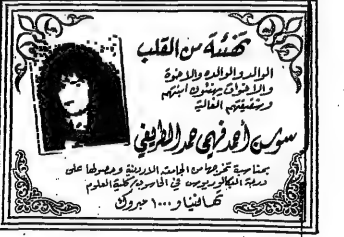 تهنئة من القلب
الوالد والوالده والاخوة
والاخوات يهنئون ابنتهم
وشقيقتهم الغالية
سوسن أحمد فهمي حمد الطريفي
بمناسبة تخرجها من الجامعة الاردنية وحصولها على
درجة البكالوريوس في الحاسوب كلية العلوم
تهانينا و ١٠٠٠ مبروك